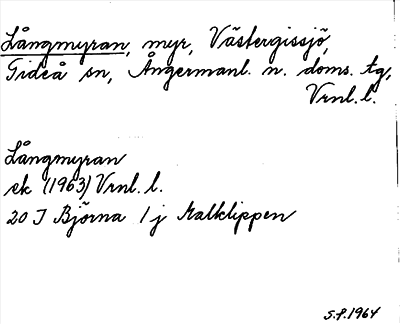 Långmyran, myr, Västergissjö,
Gideå sn, Ångermanl. n. doms. tg,
Vrnl. l.
Långmyran
ek (1963) Vrnl. l.
20 I Björna 1 j Kalklippen
S.F. 1964